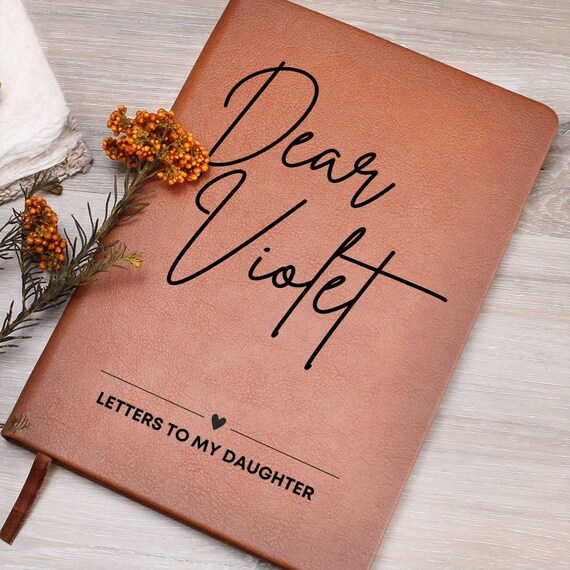 Dear
Violet
LETTERS TO MY DAUGHTER